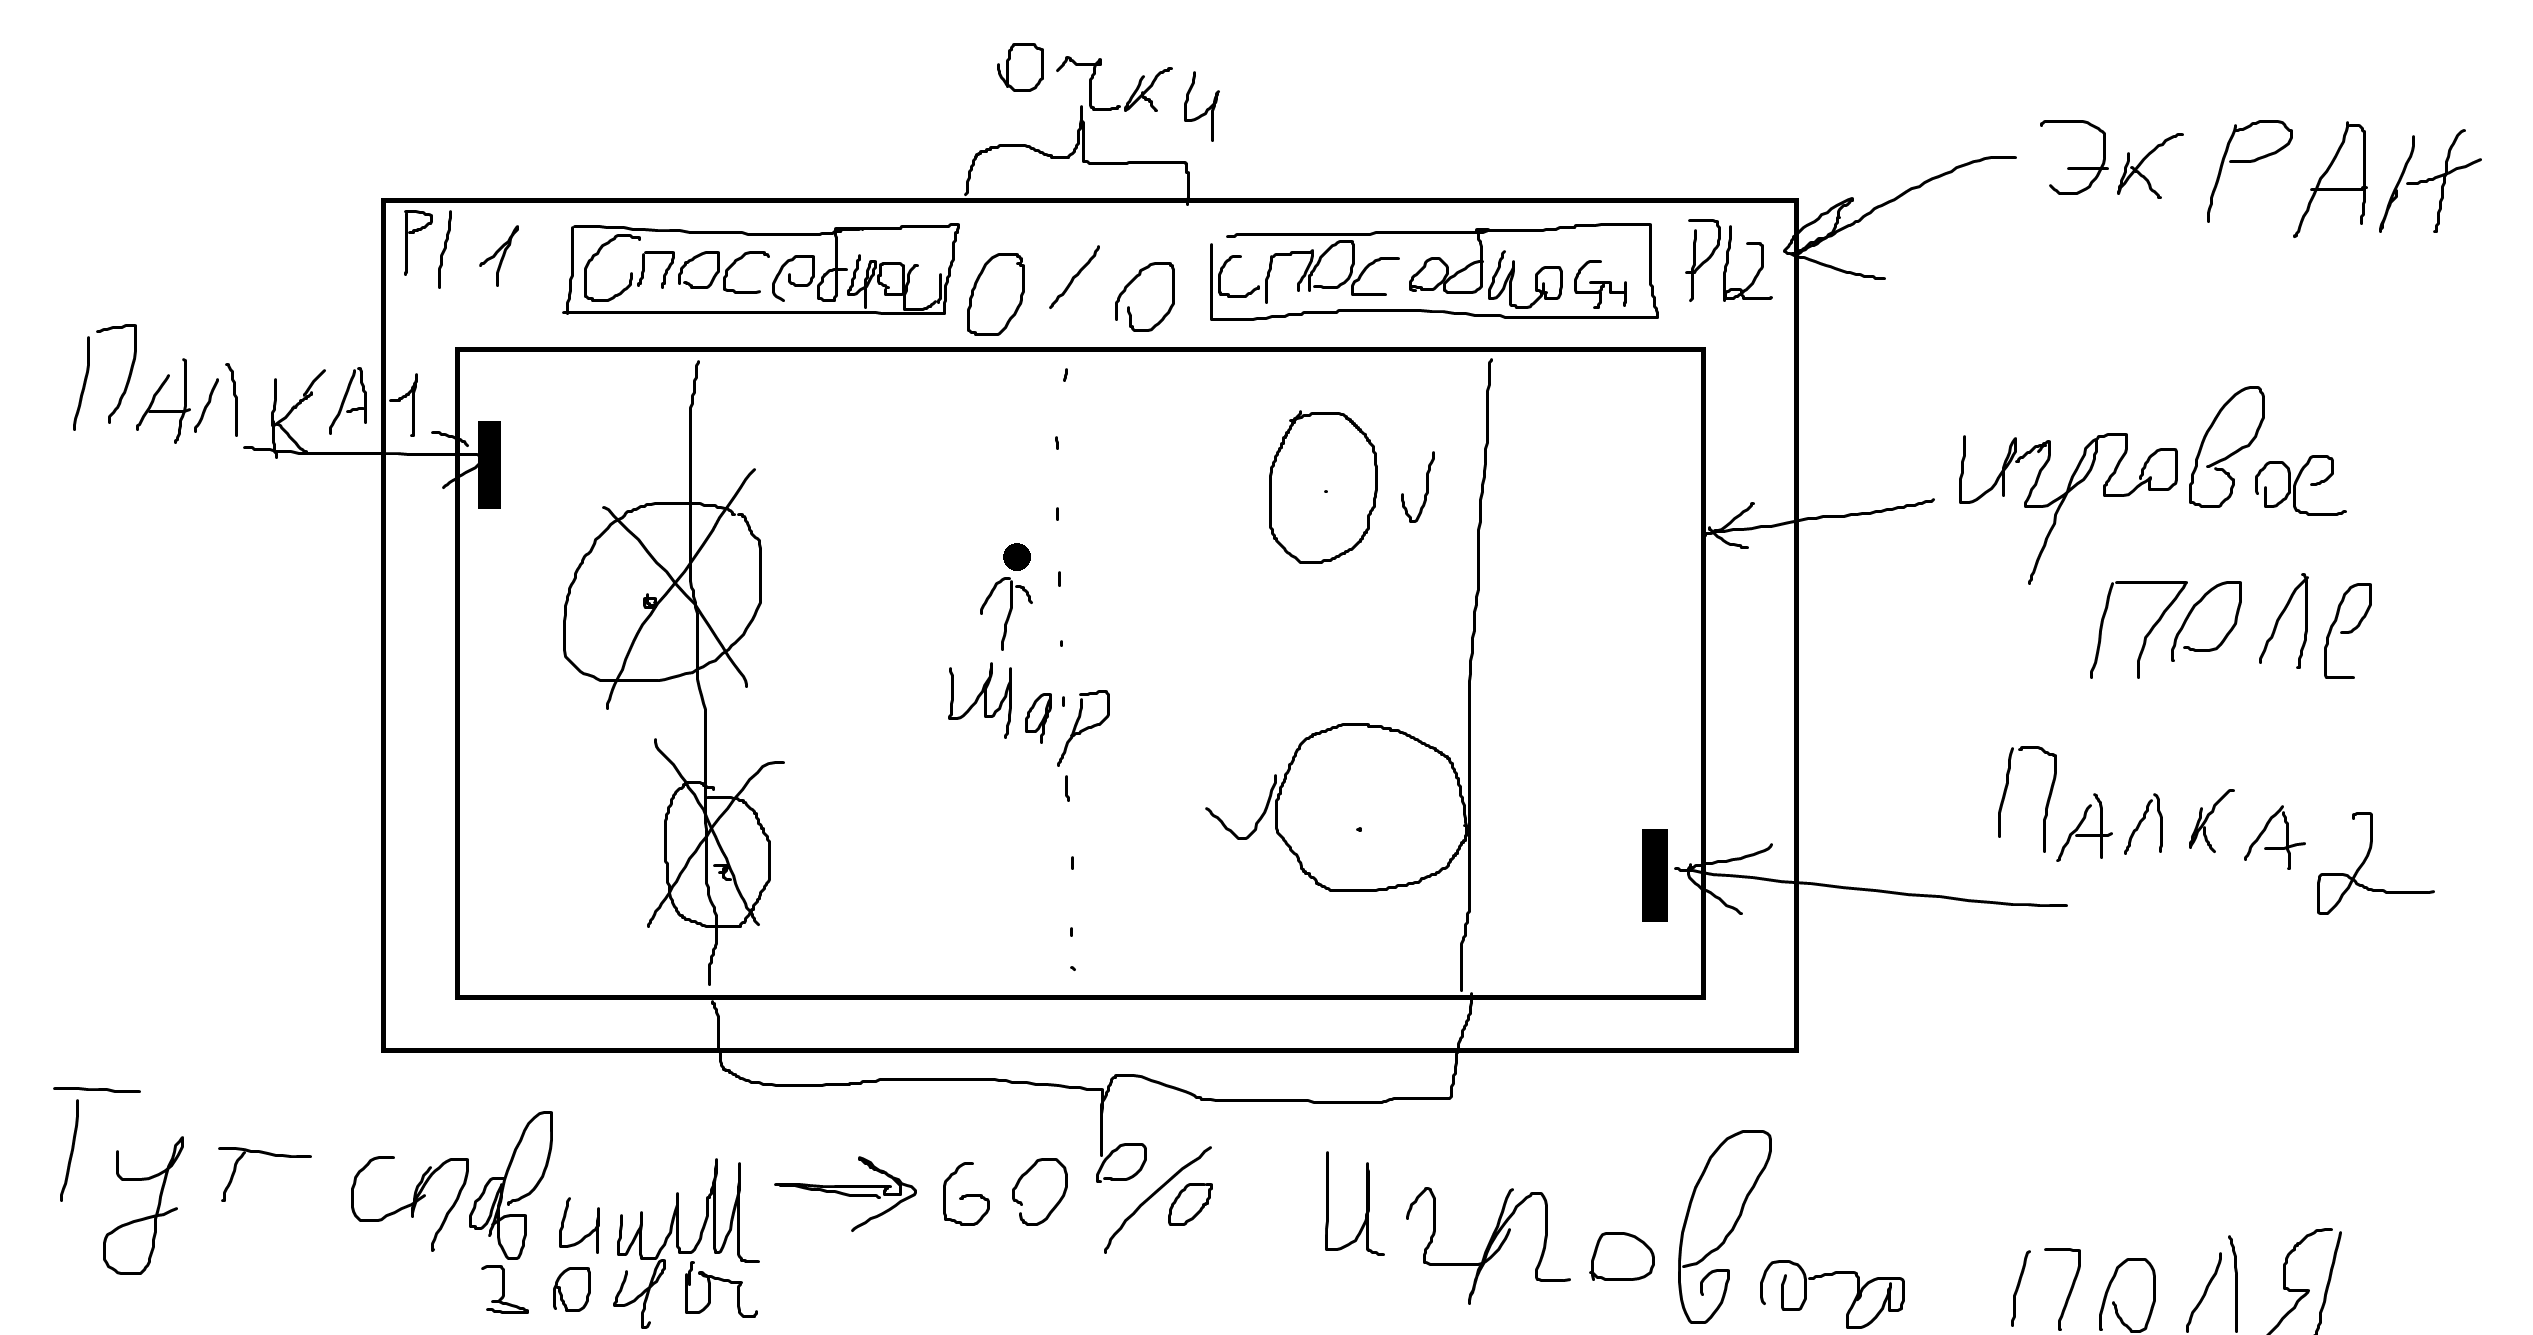 очки
ЭКРАН
Pl 1
Способнос
0/0
Способности
Pl2
ПАЛКА1
игровое
поле
Шар
ПАЛКА2
Тут спавним → 60% Игрового поля
зоны